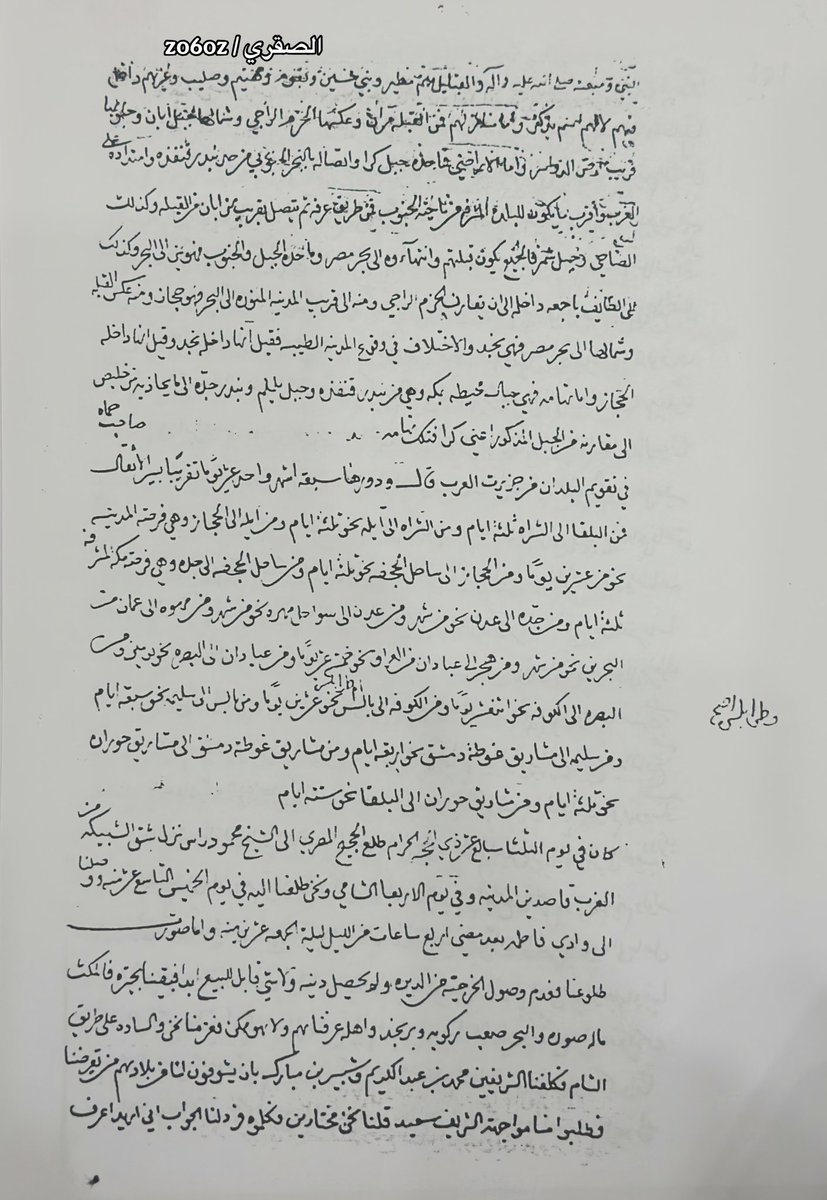 الصقري / zo6oz
النبي ومتبعته صلى الله عليه وآله والقبايل منهم مطير وبني حسين وغيرهم داخل
فمن القبله مران وعكسها الحزم الراجي وشمالها الجبل ابان وجنوبها
قريب من واما الارض فاحذه جبل كرا واتصاله بالبحر الجنوبي من حد بندر قنفذه وامتداده على
الغرب من ناحية الجنوب فمن طريق عرفه ثم يتصل بقريب من ابان من القبله وكذلك
الضاحي وجبل شمر فالجميع يكون قبلتهم وانتهآءوه الى بحر مصر وماخذه الجبل والجنوب الى البحر وكذلك
على الطايف باجعه داخله الى ان يقارن الحزم الراجي ومنه الى قريب المدينه المنوره الى البحر فهو حجاز ومنه عكس القبله
وشمالها الى بحر مصر فهي نجد والاختلاف في وقوع المدينه الطيبه فقيل انها داخله نجد وقيل انها داخله
الحجاز واما تهامه فهي جبال محيطه بمكه وهي من بندر قنفذه وجبل يلملم وبندر جده الى ما يحاذيه من خليص
الى مقارنه من الجبل المذكور اعني كرا فتلك تهامه صاحب حماه
في تقويم البلدان من جزيرت العرب قال ودورها سبعه اشهر واحد عشر يوما تقريبًا بسير الاثقال
فمن البلقا الى الشراه ثلثة ايام ومن الشراه الى ايله نحو ثلثة ايام ومن ايله الى الحجاز وهي فرضة المدينه
نحو من عشرين يومًا ومن الحجاز الى ساحل الجحفه نحو ثلثة ايام ومن ساحل الجحفه الى جده وهي فرضة مكه المشرفه
ثلثة ايام ومن جدّه الى عدن نحو من شهر ومن عدن الى سواحل مهره نحو من شهر ومن مهره الى عمان من
البحرين نحو من شهر ومن هجر الى عبادان من العراق نحو خمسة عشر يومًا ومن عبادان الى البصره نحو يومين ومن
البصره الى الكوفه نحو اثنعشر يومًا ومن الكوفه الى بالس نحو عشرين يومًا ومن بالس الى سلميه نحو سبعة ايام
ومن سلميه الى مشاريق غوطة دمشق نحو اربعة ايام ومن مشاريق غوطة دمشق الى مشاريق حوران
نحو ثلثة ايام ومن مشاريق حوران الى البلقا نحو ستة ايام
وطرابلس
كان في يوم الثلثا سابع عشر ذي الحجه الحرام طلع الحجيج المصري الى الشيخ محمود راس نزل شق الشبيكه من
الغرب قاصدين المدينه وفي يوم الاربعا الشامي ونحن طلعنا اليه في يوم الخميس التاسع عشر منه ووصلنا
الى وادي فاطمه بعد مضي اربع ساعات من الليل ليلة الجمعه عشرين منه واما صورت
طلوعنا فعدم وصول الخرجيه من الديره ولا يحصل دينه ولا شي قابل للبيع ابدا فبقينا بحيره فالمكث
ماله صوره والبحر صعب ركوبه وبر نجد واهله عرفناهم ولا هو ممكن فعزمنا نحن والساده على طريق
الشام فكلفنا الشريفين محمد بن عبد الكريم وشبير بن مبارك بان يشوفون لنا من بلادهم من يعرضنا
فطلبوا منا مواجهة الشريف سعيد قلنا نحن مختارين فكلموه فرد لنا الجواب اني اريد اعرف